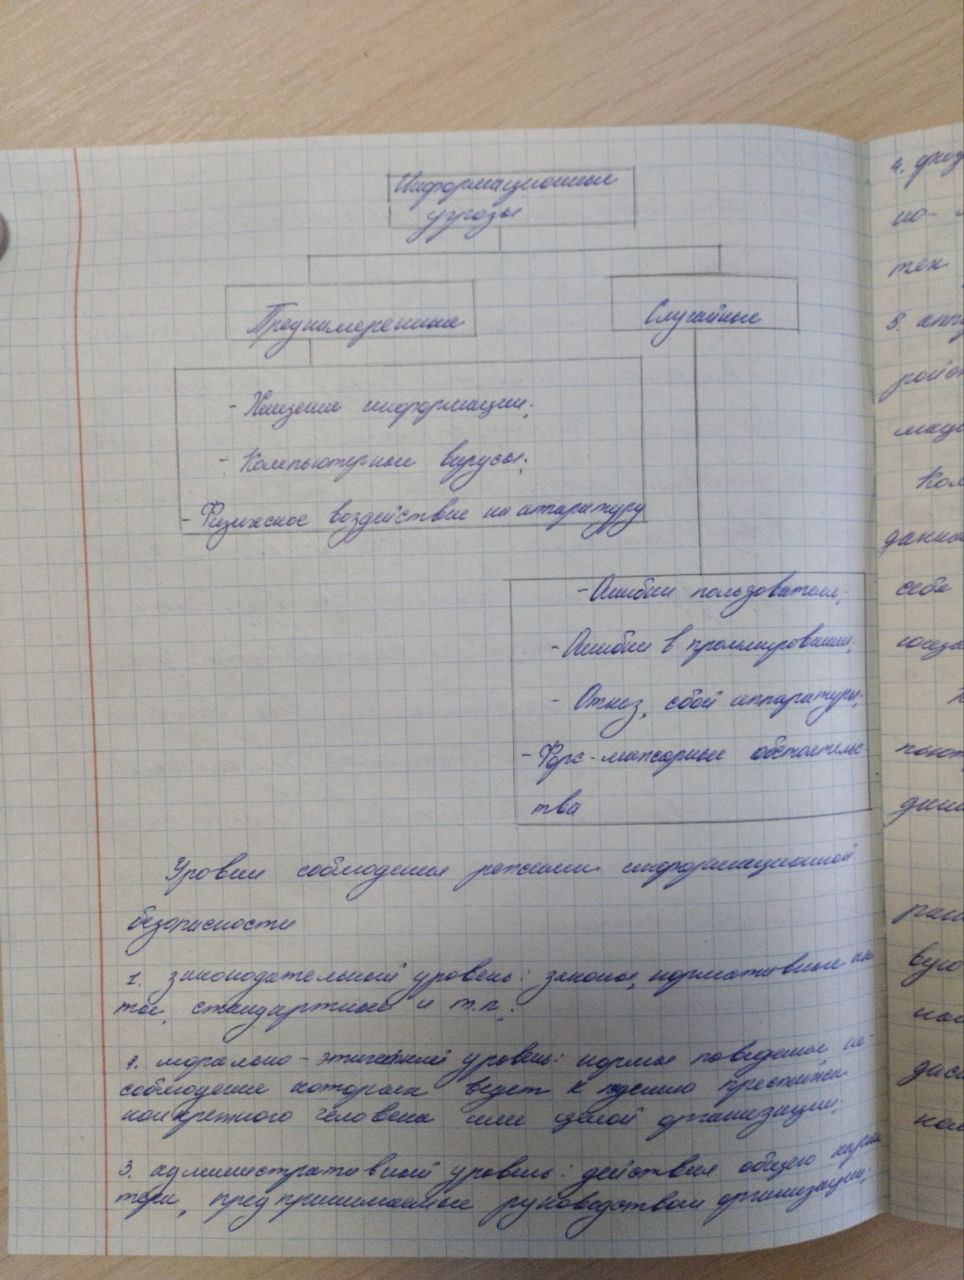 Информационные
угрозы
Преднамеренные
Случайные
- Хищение информации;
- Компьютерные вирусы;
- Физическое воздействие на аппаратуру
- Ошибки пользователя;
- Ошибки в
- Отказ, сбой аппаратуры;
- Форс-мажорные обстоятельс-
тва
Уровни соблюдения режима информационной
безопасности
1. законодательный уровень: законы, нормативные ак-
ты, стандартные и т.п.;
2. морально-этический уровень: нормы поведения, не-
соблюдение которых ведет к престижа
конкретного человека или целой организации;
3. административный уровень: действия общего харак
тера, предпринимаемые руководством организации;
4. физ
но-
тех
5. апп
ком
данны
себя